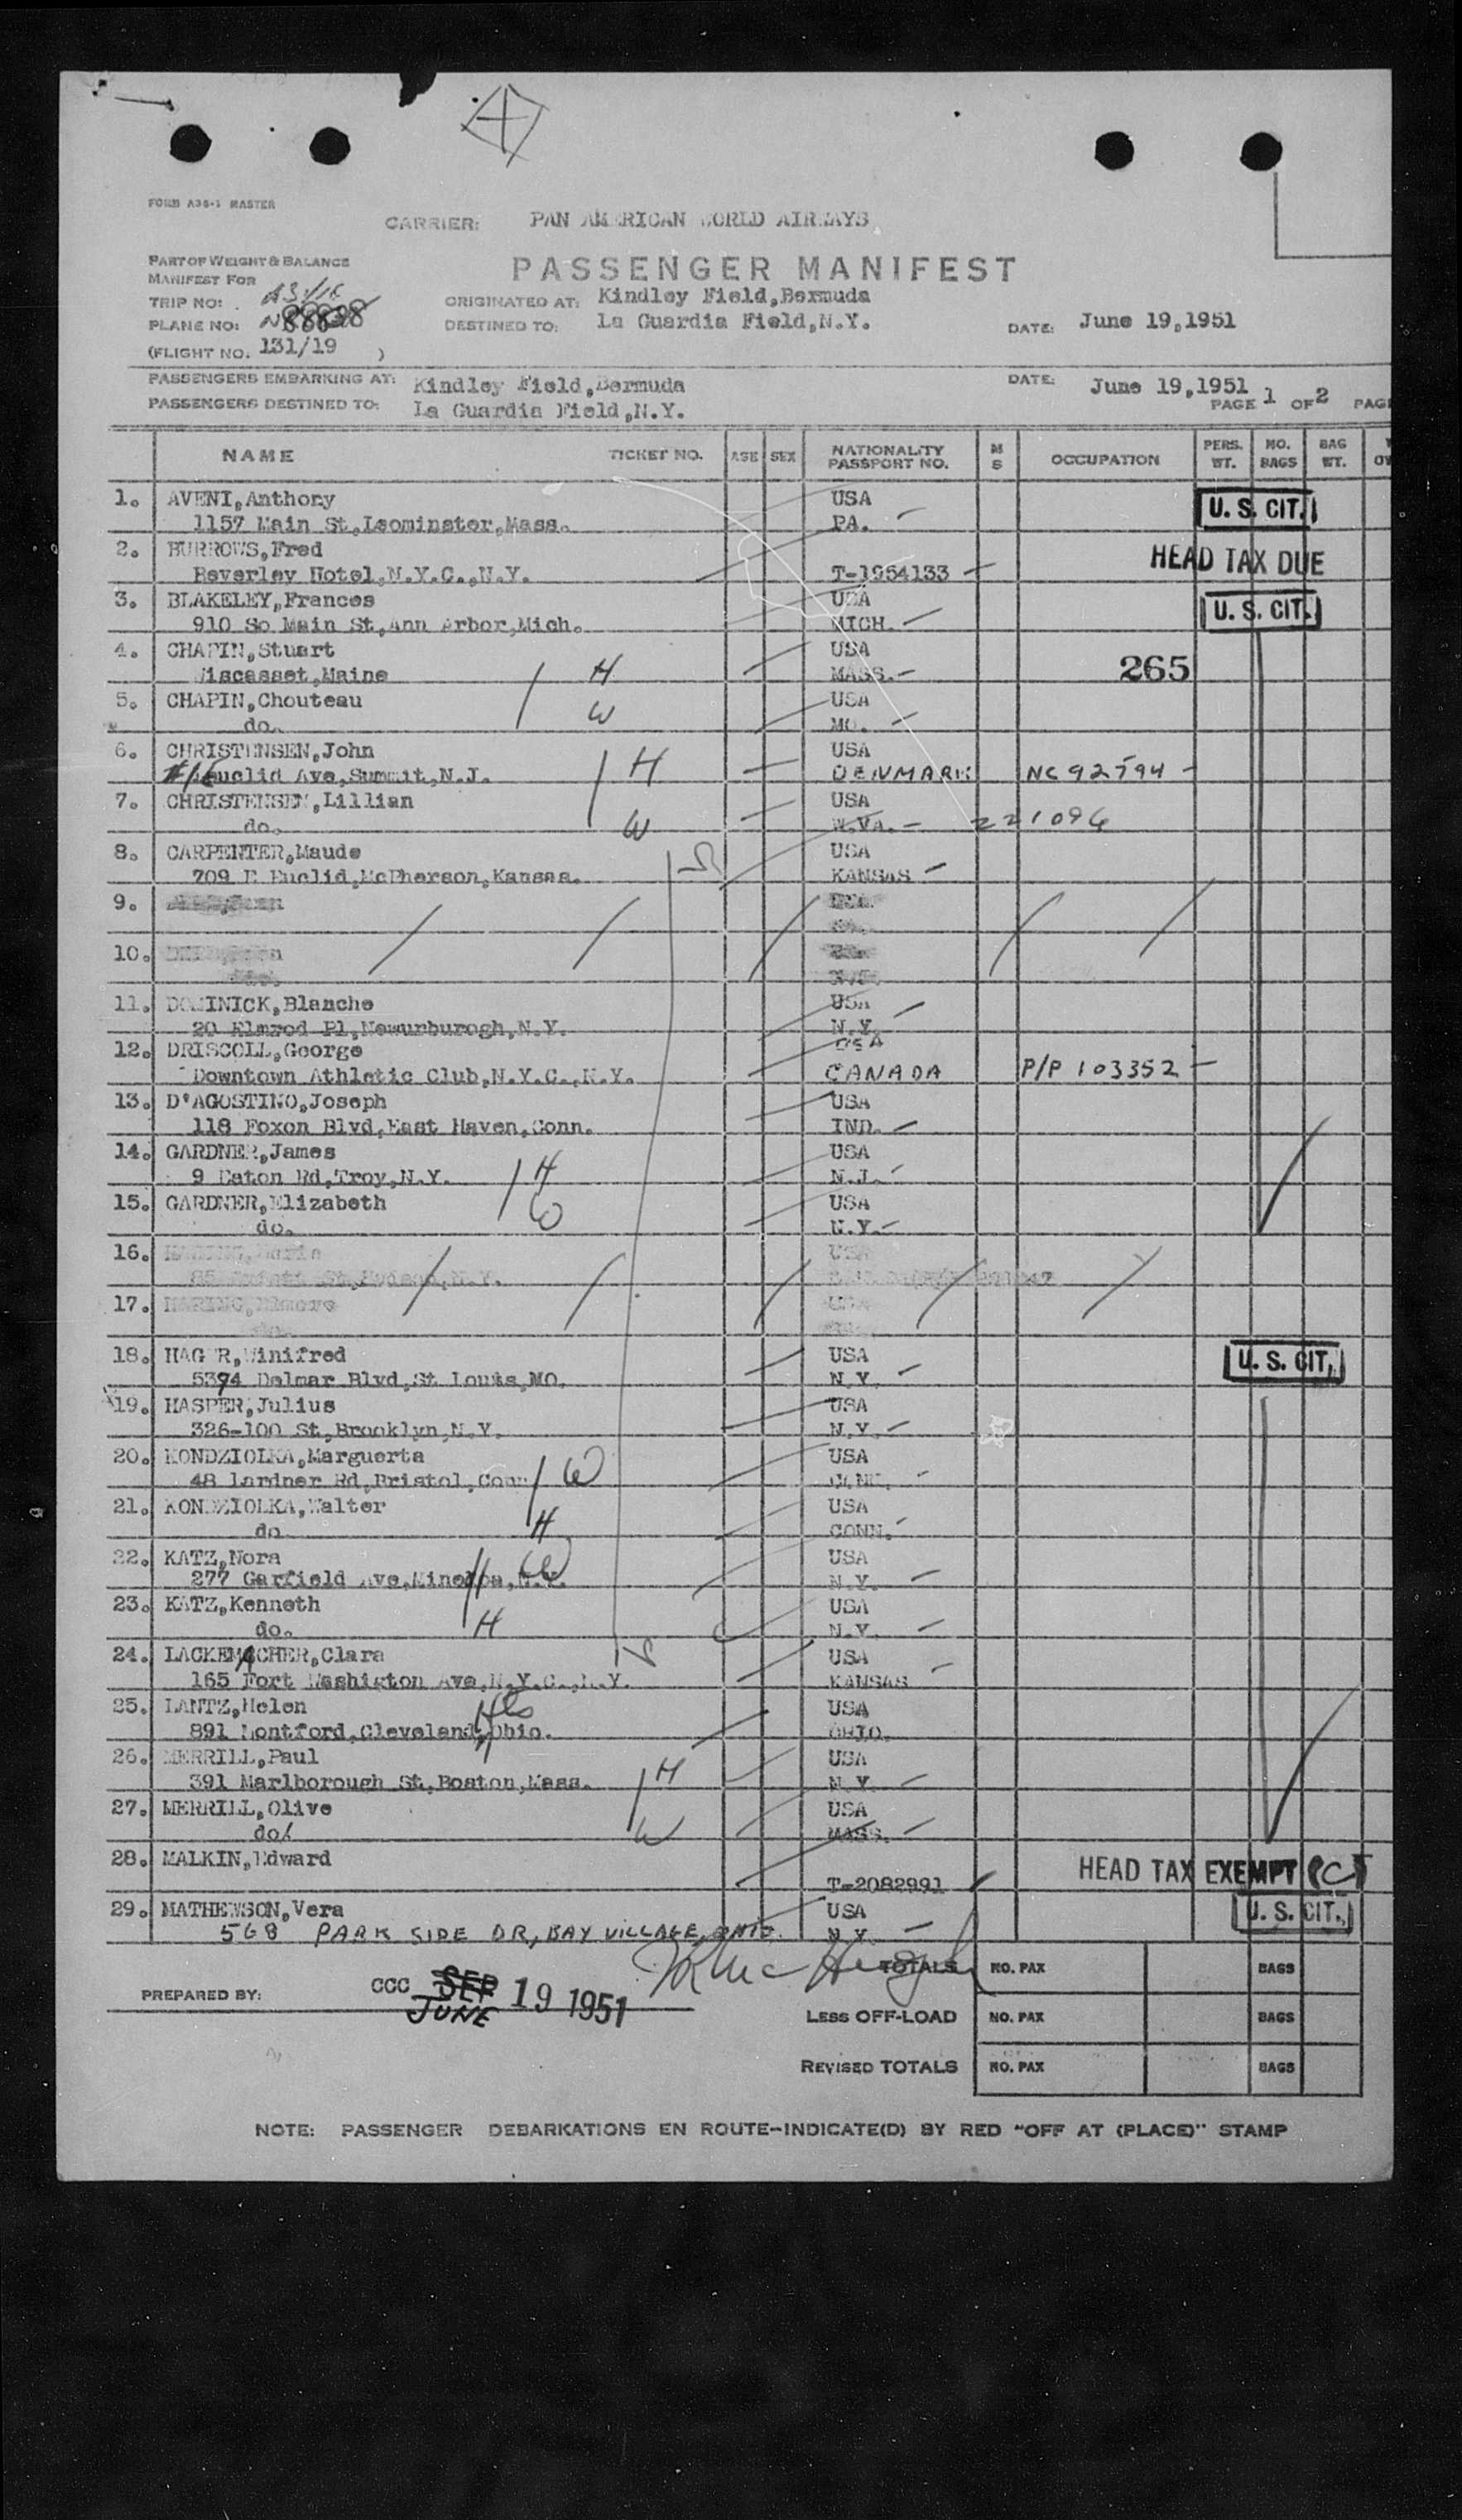 FORM A36-1 MASTER
CARRIER: PAN AMERICAN WORLD AIRWAYS
PART OF WEIGHT & BALANCE
MANIFEST FOR
PASSENGER MANIFEST
TRIP NO:
ORIGINATED AT: Kindley Field,Bermuda
PLANE NO:
DESTINED TO: La Guardia Field,N.Y.
DATE: June 19,1951
(FLIGHT NO. 131/19 )
PASSENGERS EMBARKING AT: Kindley Field,Bermuda
DATE: June 19,1951
PASSENGERS DESTINED TO: La Guardia Field,N.Y.
PAGE 1 OF 2 PAG
NAME TICKET NO. AGE SEX NATIONALITY PASSPORT NO. M S OCCUPATION PERS. WT. NO. BAGS BAG WT.
1. AVENI,Anthony USA U. S. CIT.
1157 Main St,Leominster,Mass. PA.
2. BURROWS,Fred HEAD TAX DUE
Beverley Hotel,N.Y.C.,N.Y. T-1954133
3. BLAKELEY,Frances USA U. S. CIT.
910 So Main St,Ann Arbor,Mich. MICH.
4. CHAPIN,Stuart USA
Wiscasset,Maine H MASS. 265
5. CHAPIN,Chouteau USA
do. W MO.
6. CHRISTENSEN,John USA
Euclid Ave,Summit,N.J. H DENMARK NC 92594
7. CHRISTENSEN,Lillian USA
do. W W.VA. 221096
8. CARPENTER,Maude USA
709 E Euclid,McPherson,Kansas. KANSAS
9.
10.
11. DOMINICK,Blanche USA
20 Elmrod Pl,Newunburogh,N.Y. N.Y.
12. DRISCOLL,George USA
Downtown Athletic Club,N.Y.C.,N.Y. CANADA P/P 103352
13. D'AGOSTINO,Joseph USA
118 Foxon Blvd,East Haven,Conn. IND.
14. GARDNER,James USA
9 Eaton Rd,Troy,N.Y. H N.J.
15. GARDNER,Elizabeth USA
do. W N.Y.
16.
17.
18. HAGER,Winifred USA U. S. CIT.
5394 Delmar Blvd,St Louis,MO. N.Y.
19. HASPER,Julius USA
326-100 St,Brooklyn,N.Y. N.Y.
20. KONDZIOLKA,Marguerta USA
48 Lardner Rd,Bristol,Conn W CONN.
21. KONDZIOLKA,Walter USA
do H CONN.
22. KATZ,Nora USA
277 Garfield Ave,Mineola,N.Y. W N.Y.
23. KATZ,Kenneth USA
do. H N.Y.
24. LACKEMACHER,Clara USA
165 Fort Washigton Ave,N.Y.C.,N.Y. KANSAS
25. LANTZ,Helen USA
891 Montford,Cleveland,Ohio. OHIO.
26. MERRILL,Paul USA
391 Marlborough St,Boston,Mass. H N.Y.
27. MERRILL,Olive USA
do. W MASS.
28. MALKIN,Edward HEAD TAX EXEMPT
T-2082991
29. MATHEWSON,Vera USA U. S. CIT.
568 PARK SIDE DR, BAY VILLAGE, OHIO. N.Y.
TOTALS NO. PAX BAGS
PREPARED BY: CCC SEP 19 1951
JUNE
LESS OFF-LOAD NO. PAX BAGS
REVISED TOTALS NO. PAX BAGS
NOTE: PASSENGER DEBARKATIONS EN ROUTE-INDICATE(D) BY RED "OFF AT (PLACE)" STAMP